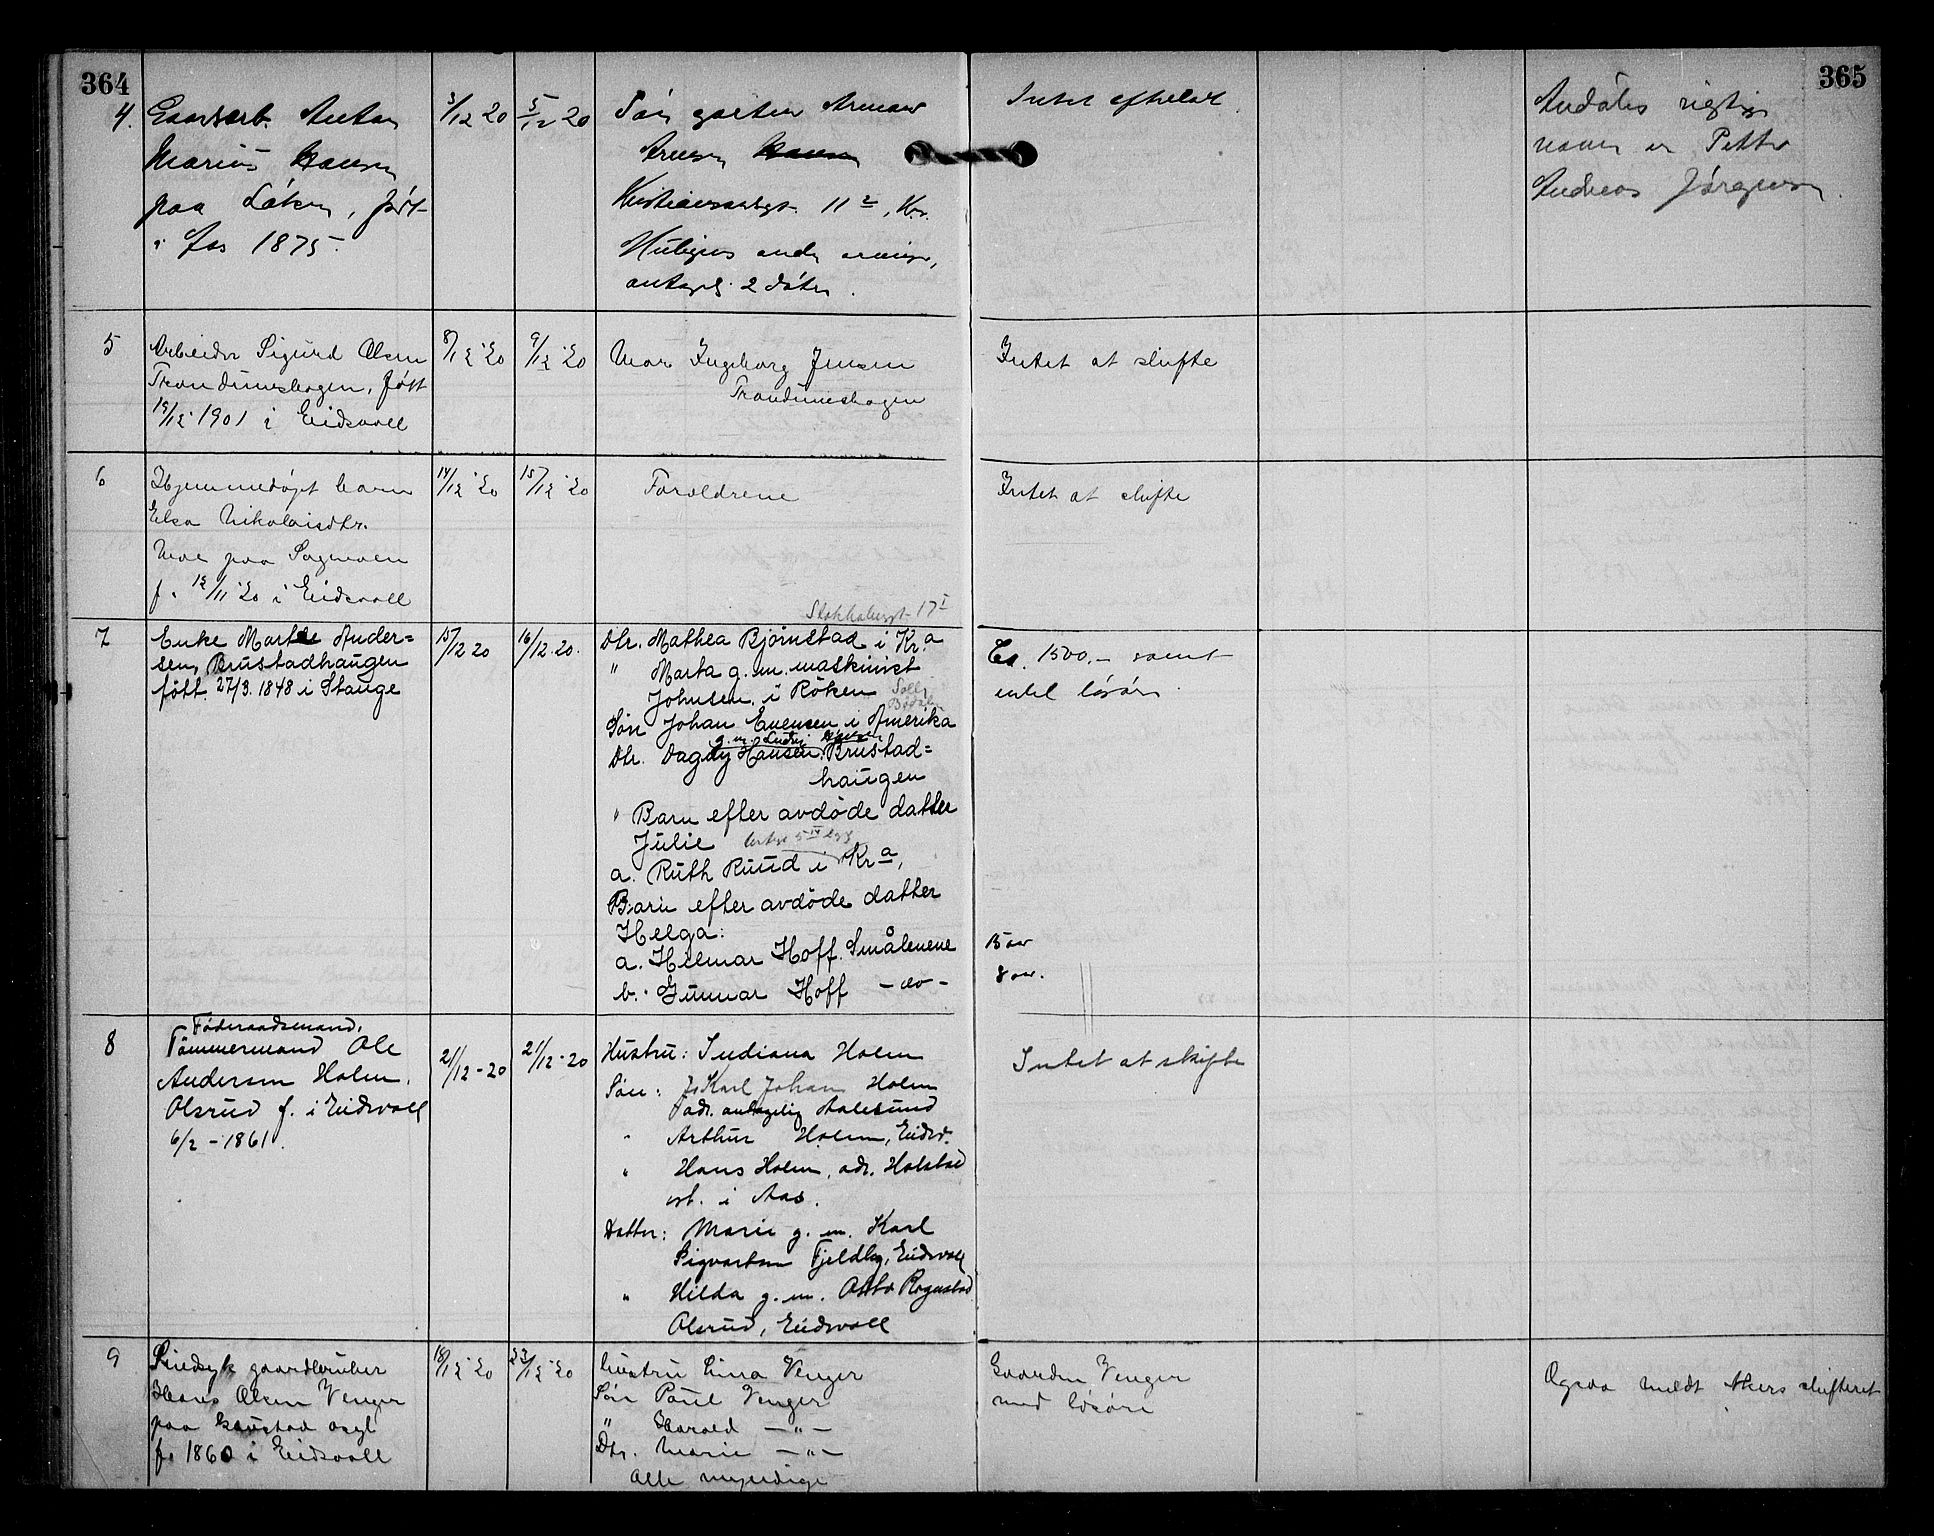 364
365
4.
Gaardsarb. Anton
Marius Hansen
paa Løken, født
i Aas 1875.
3/12 20
5/12 20
Søn
Hansen
11
2 døtre.
Intet efterlat
rigtige
navn er Petter
Andreas Jørgensen
5
Arbeider Sigurd Olsen
Trandumskogen, født
19/12 1901 i Eidsvoll
8/12 20
9/12 20
Mor Ingeborg Jensen
Trandumskogen
Intet at skifte
6
Hjemmedøpt barn
Elsa Nikolaisdtr.
Moe paa Sagmoen
f. 12/11 20 i Eidsvoll
14/12 20
15/12 20
Forældrene
Intet at skifte
7
Enke Marthe Ander=
sen, Brustadhaugen
født 27/3. 1848 i Stange
15/12 20
16/12. 20.
17 I
Dtr. Mathea Bjørnstad i Kr.a
" Marta g. m. maskinist
Johnsen i Röken
Søn Johan Evensen i Amerika
g. m. Ludvig Hansen
Dtr. Dagny Hansen, Brustad=
haugen
" Barn efter avdøde datter
Julie
a. Ruth Ruud i Kr a,
Barn efter avdöde datter
Helga:
a. Hilmar Hoff. Smålenene
b. Gunnar Hoff - do -
Ca. 1500.- samt
endel løsøre.
15 aar
8 aar.
8
Føderaadsmand,
Tømmermand Ole
Andersen Holm,
Olsrud f. i Eidsvoll
6/2 - 1861.
21/12 - 20
21/12 - 20
Hustru: Indiana Holm
Søn: Karl Johan Holm
adr. antagelig Aalesund
" Arthur Holm, Eidsv.
" Hans Holm, adr. Holstad
st. i Aas.
Datter: Marie g. m. Karl
Sigvartsen Fjeldby, Eidsvoll
" Hilda g. m. Otto Rognstad
Olsrud, Eidsvoll
Intet at skifte
9
Sindsyk gaardbruker
Hans Olsen Venger
paa Gaustad asyl
f. 1860 i Eidsvoll
18/12 20
23/12 20
Hustru Lina Venger
Søn Paul Venger
" Harald - " -
Dtr. Marie - " -
Alle myndige
Gaarden Venger
med løsøre
Ogsaa meldt Akers skifteret